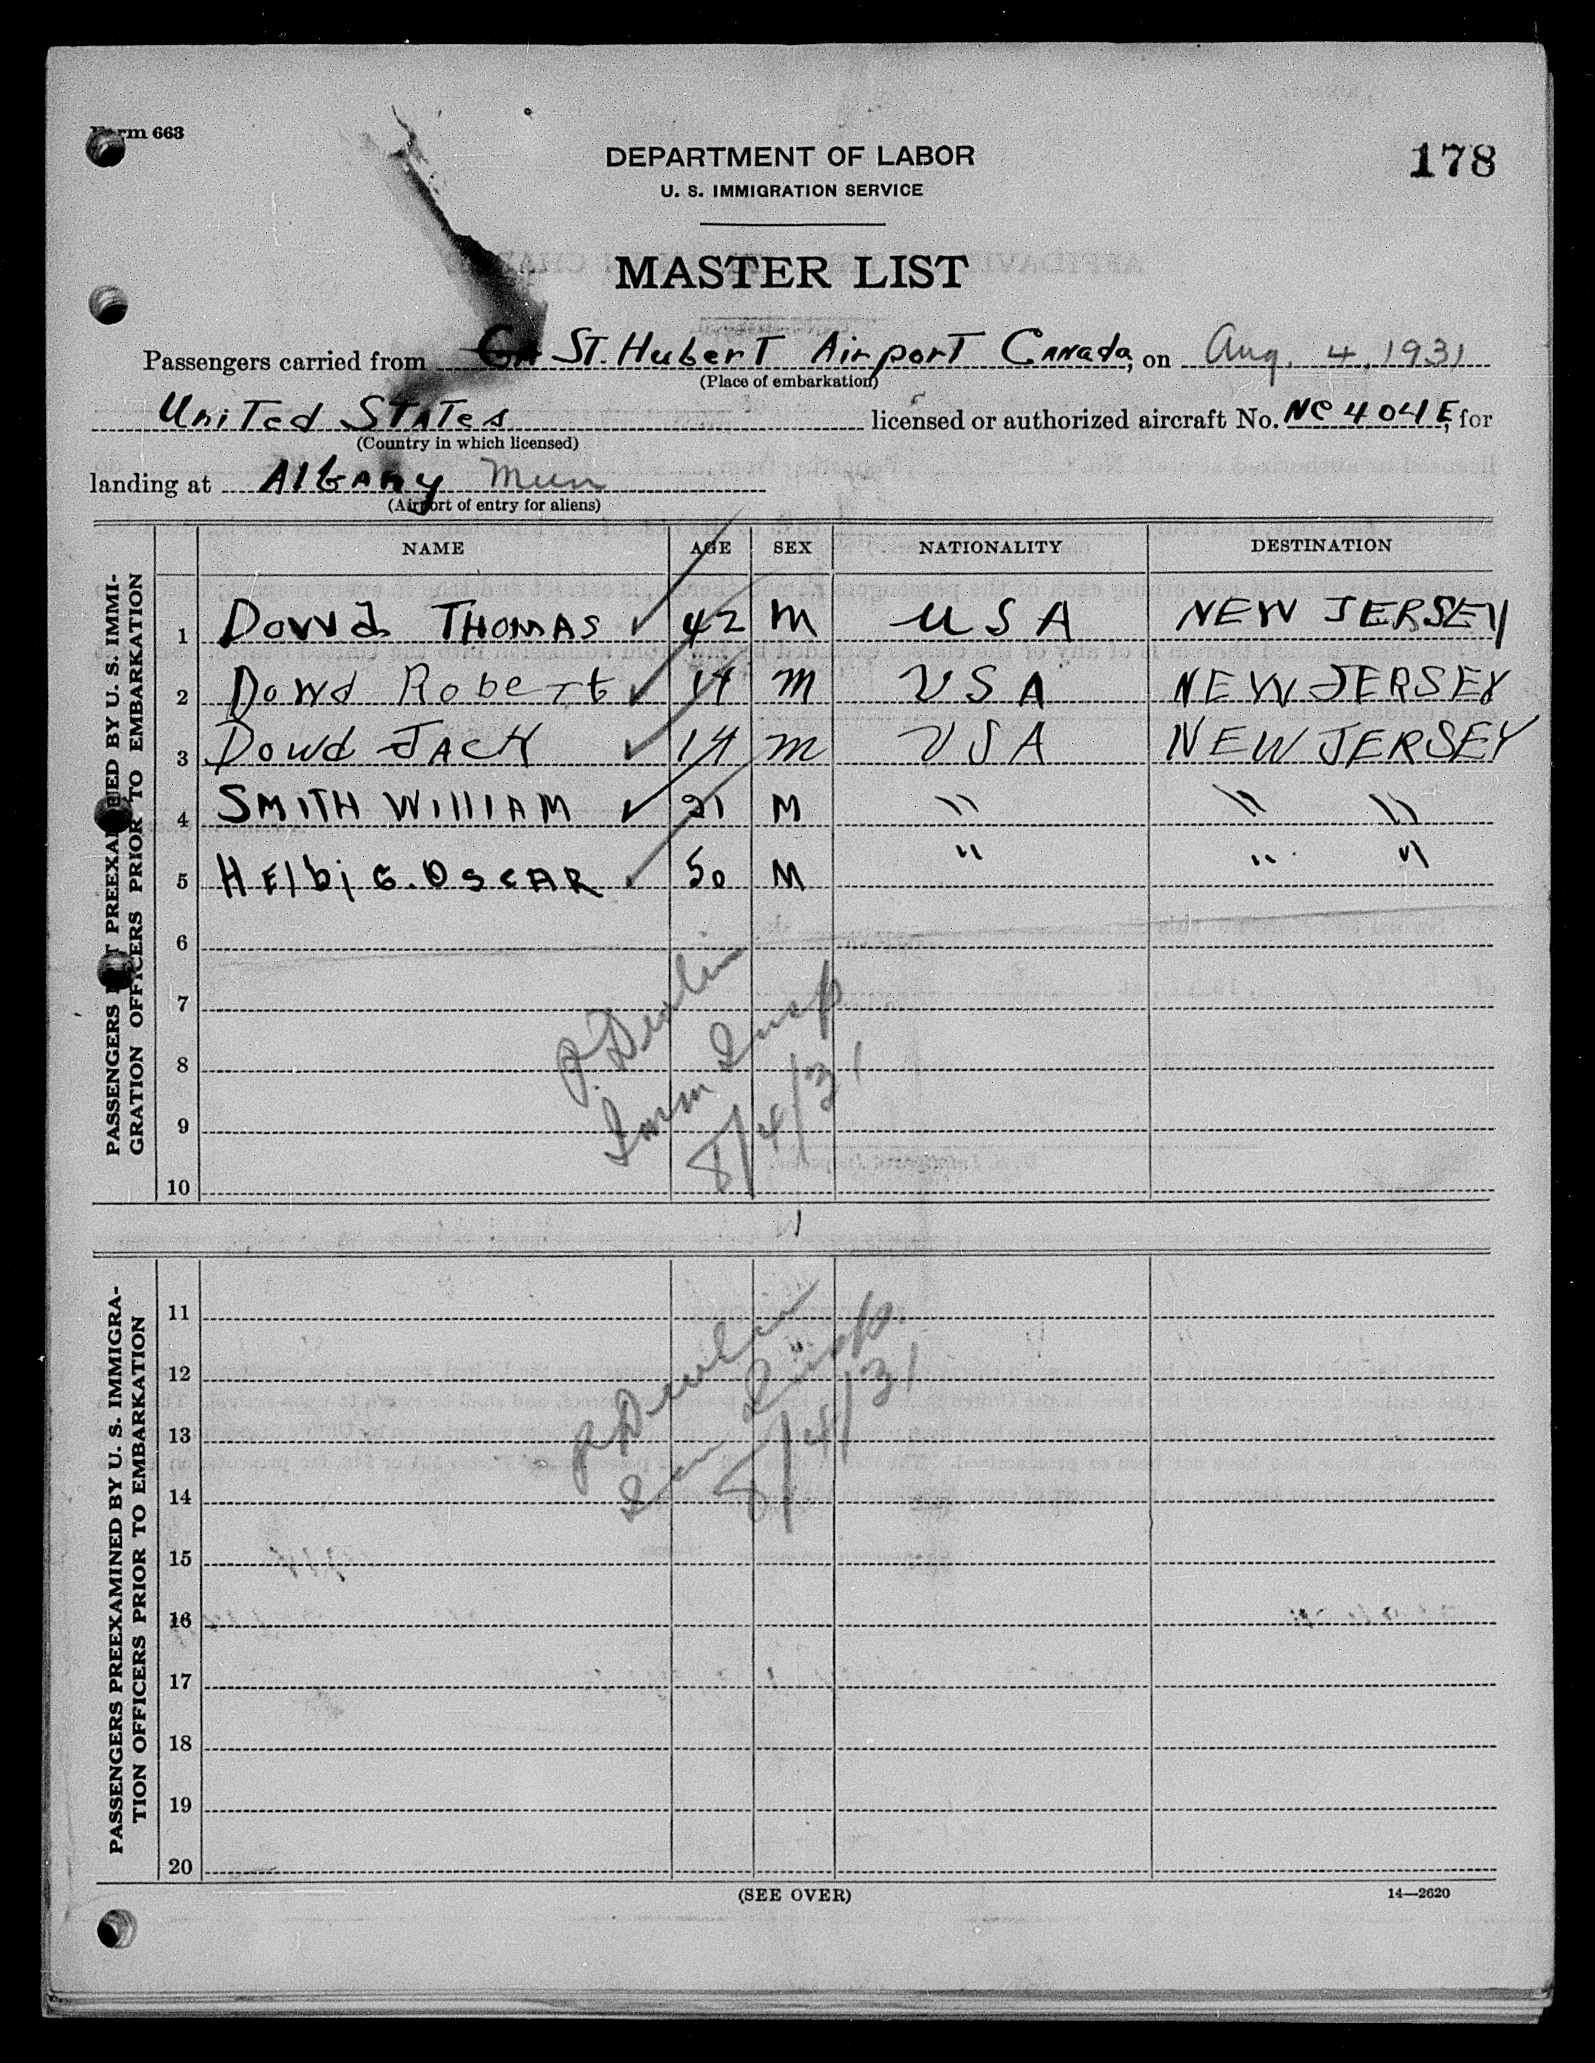 Form 663
DEPARTMENT OF LABOR
U. S. IMMIGRATION SERVICE
178
MASTER LIST
Passengers carried from St. Hubert Airport Canada, on Aug. 4, 1931
(Place of embarkation)
United States licensed or authorized aircraft No. NC 404E, for
(Country in which licensed)
landing at Albany Mun
(Airport of entry for aliens)
NAME AGE SEX NATIONALITY DESTINATION
PASSENGERS NOT PREEXAMINED BY U. S. IMMI-
GRATION OFFICERS PRIOR TO EMBARKATION
1 Dowd THOMAS ✓ 42 M USA NEW JERSEY
2 Dowd Robert ✓ 14 M USA NEW JERSEY
3 Dowd JACK ✓ 14 M USA NEW JERSEY
4 SMITH WILLIAM ✓ 21 M " " "
5 HElbiG. OSCAR ✓ 50 M " " "
6
7
8
9
10
P. Devlin
Imm Insp
8/4/31
PASSENGERS PREEXAMINED BY U. S. IMMIGRA-
TION OFFICERS PRIOR TO EMBARKATION
11
12
13
14
15
16
17
18
19
20
P Devlin
Imm Insp.
8/4/31
(SEE OVER)
14—2620